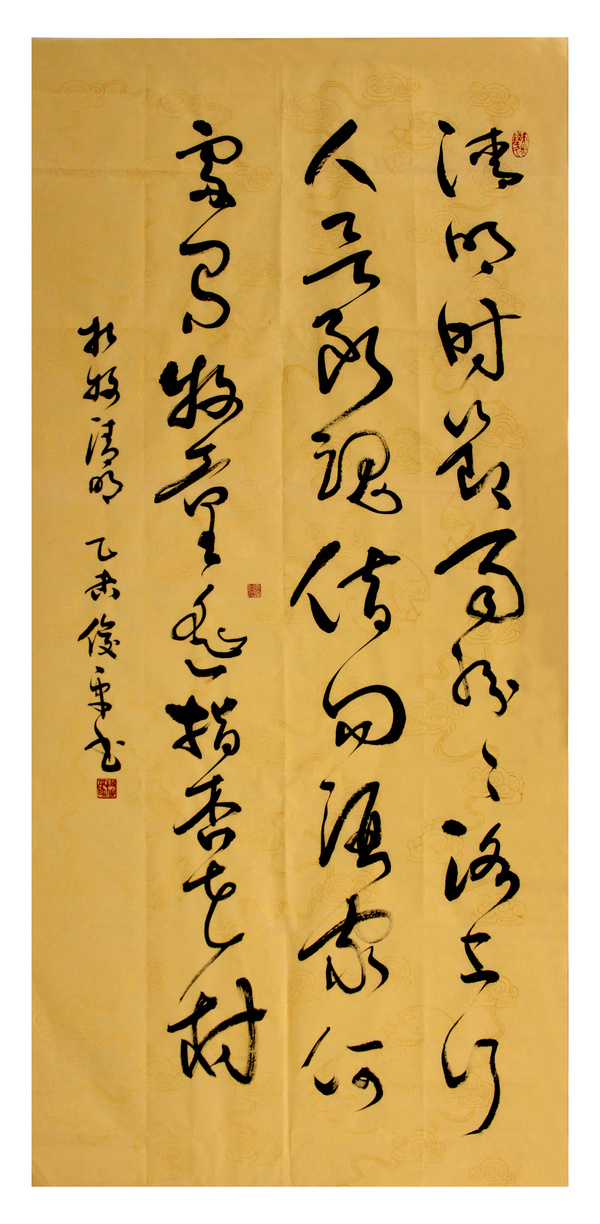 清明时節雨紛々路上行
人欲断魂借问酒家何
處有牧童遥指杏花村
杜牧清明 乙未俊平书